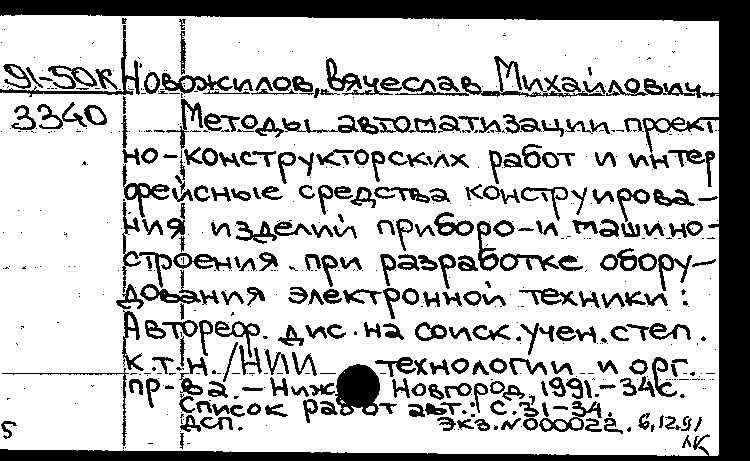 91-50К Новожилов, Вячеслав Михайлович
3340 Методы автоматизации проект
но-конструкторских работ и интер
фейсные средства конструирова-
ния изделий приборо-и машино-
строения при разработке обору-
дования электронной техники:
Автореф. дис. на соиск. учен. степ.
к.т.н. /НИИ технологии и орг.
пр-ва. - Ниж Новгород, 1991.-34с.
Список работ авт.: с.31-34.
ДСП. Экз.N000022. 6.12.91
5 ЛК